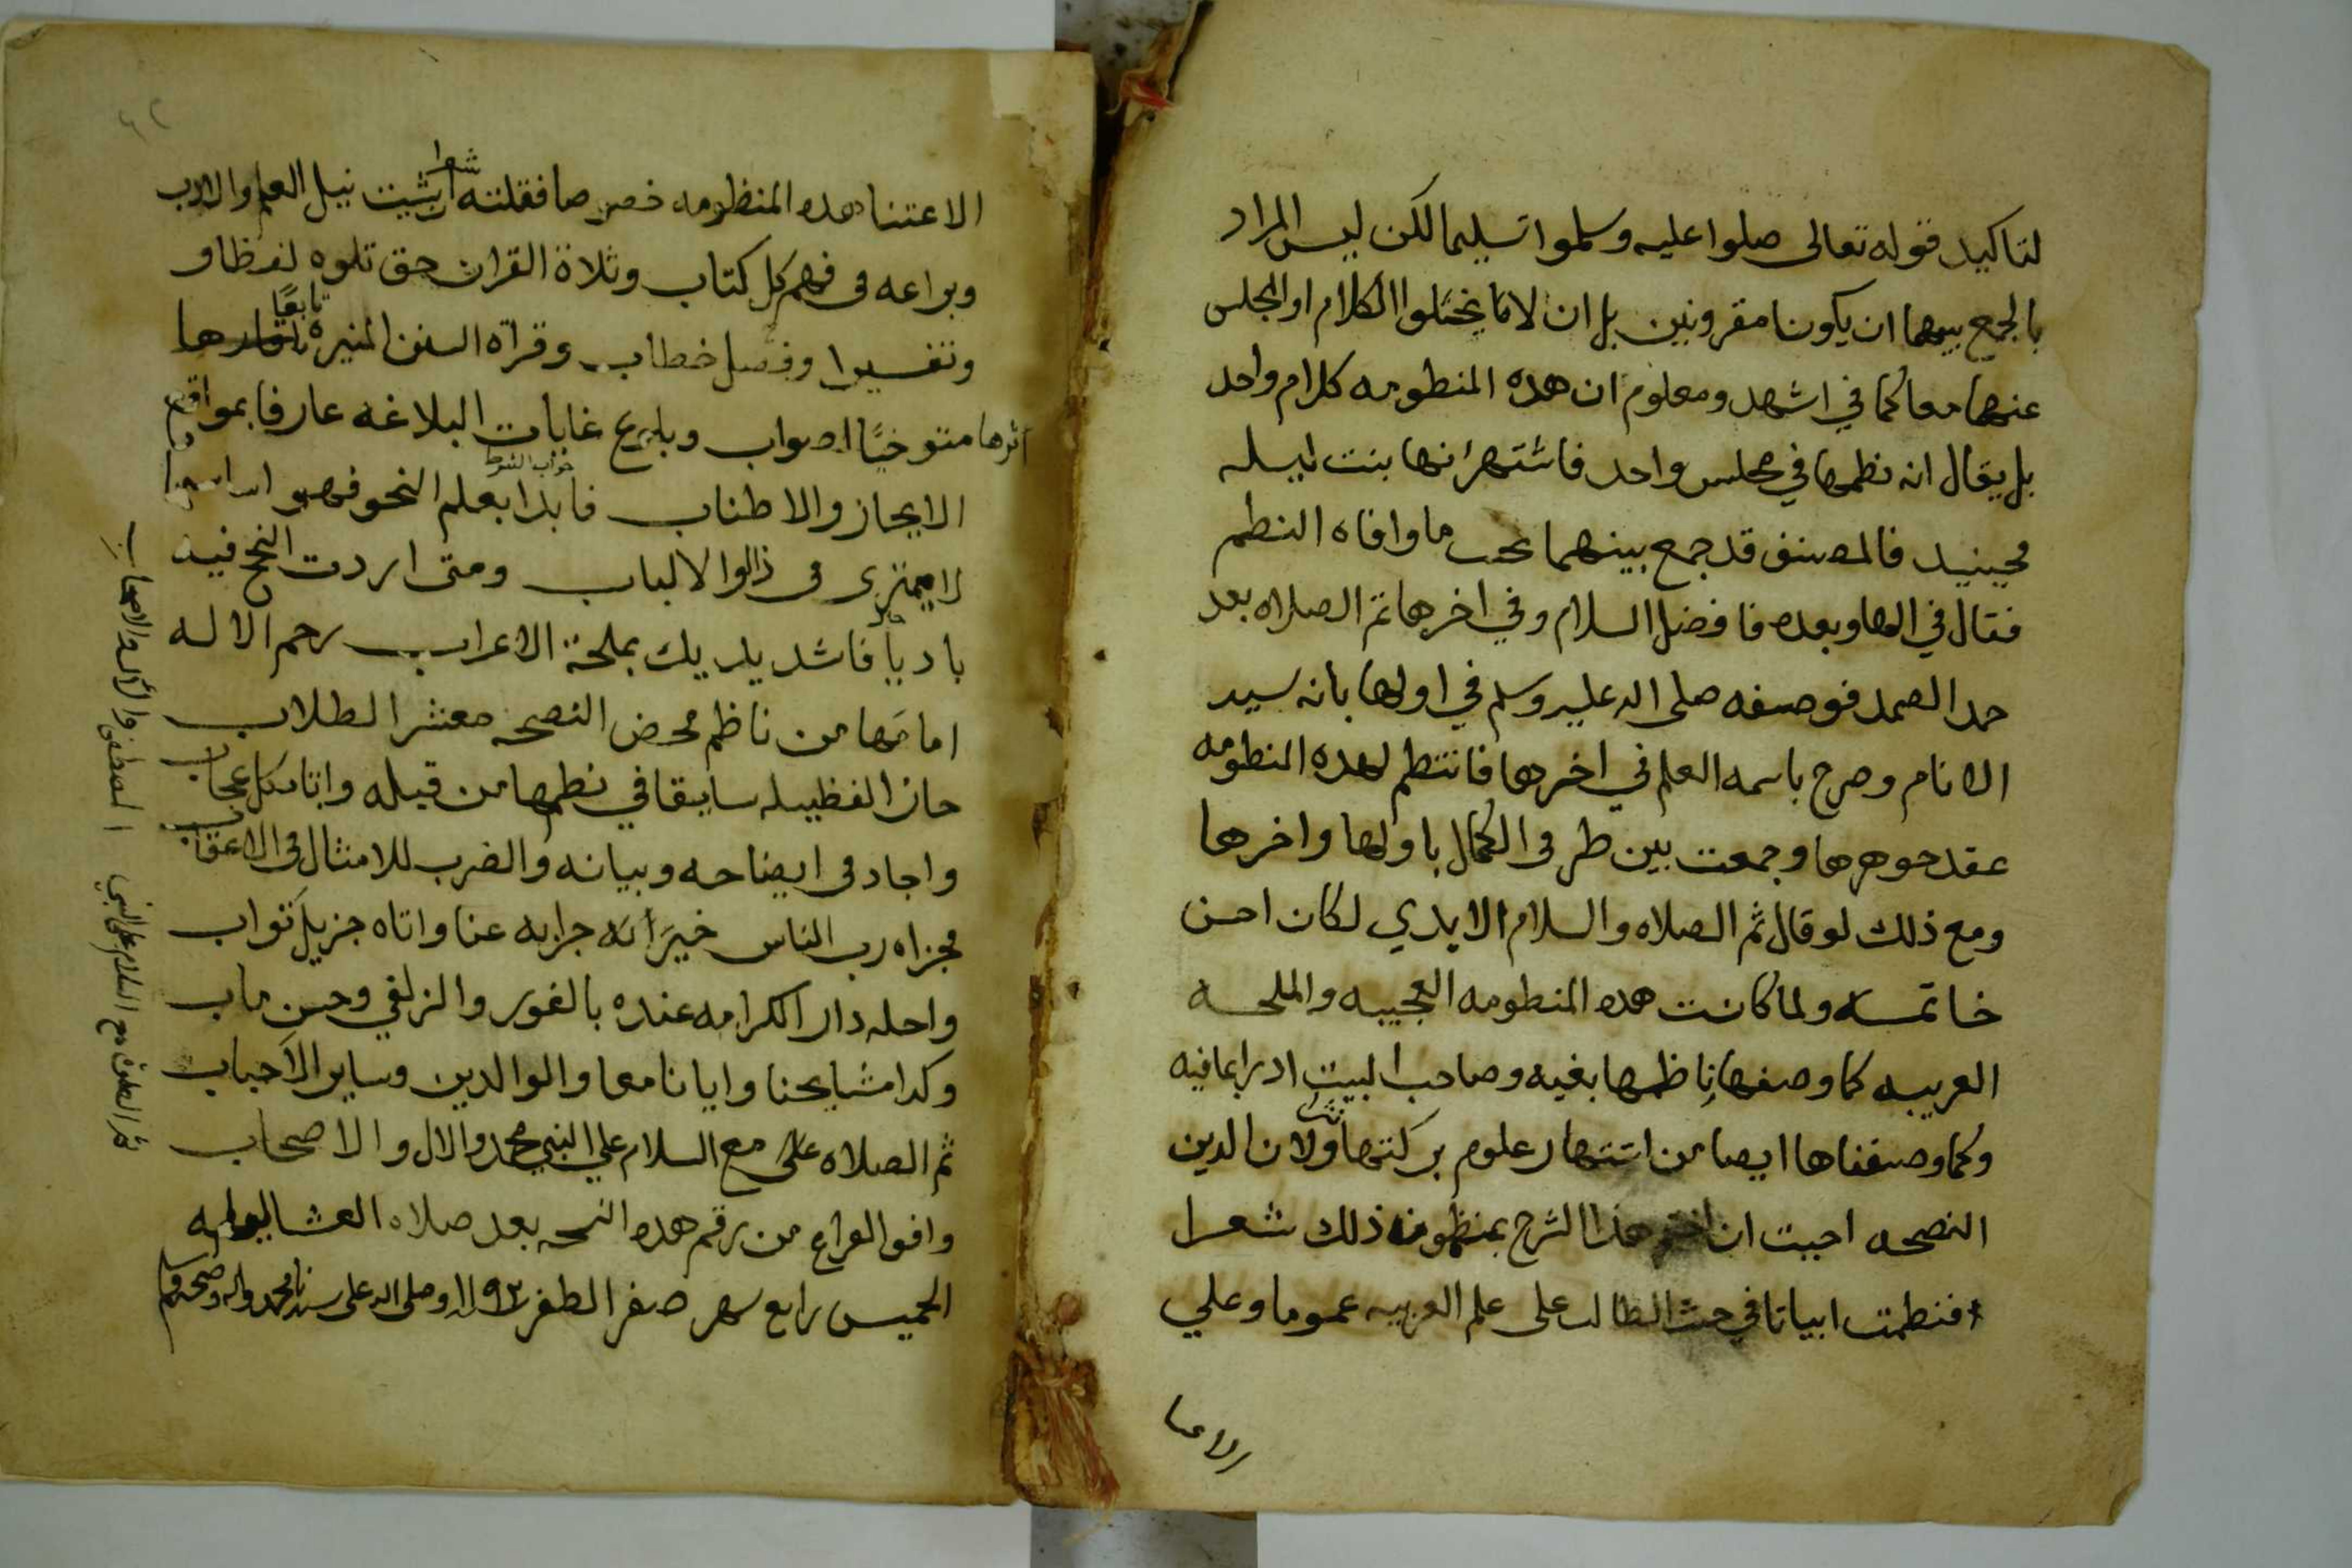 لتاكيد قوله تعالى صلوا عليه وسلموا تسليما لكن ليس المراد
بالجمع بينهما ان يكونا مقرونين بل ان لا يخلوا الكلام او المجلس
عنهما معا كما في اشهد ومعلوم ان هده المنطومه كلام واحد
بل يقال انه نطمها في مجلس واحد فاشتهر انها بنت ليله
فحينيد فالمصنف قد جمع بينهما بحسب ما وافاه النطم
فقال في اولها وبعده فافضل السلام وفي اخرها ثم الصلاه بعد
حمد الصمد فوصفه صلى الله عليه وسلم في اولها بانه سيد
الانام وصرح باسمه العلم في اخرها فانتطم لهده المنطومه
عقد جوهرها وجمعت بين طرفى الكمال باولها واخرها
ومع ذلك لو قال ثم الصلاه والسلام الابدي لكان احسن
خاتمه ولما كانت هده المنطومه العجيبه والملحه
العربيه كما وصفها ناظمها بغيه وصاحب البيت ادرا بما فيه
وكما وصفناها ايضا من اشتهار علوم بركتها ولان الدين
النصحه احببت ان اختم هذا الشرح بمنظومة ذلك شعرا
فنطمت ابياتا في حث الطالب على علم العربيه عموما وعلي
الاعتنا
الاعتنا بهده المنظومه خصوصا فقلت شعرا ان شيت نيل العلم والادب
وبراعه فى فهم كل كتاب وتلاة القران حق تلوه لفظا و
وتفسيرا وفصل خطاب وقراة السنن المنيره تابعا
اثرها متوخيًا لصواب وبلوغ غايات البلاغه عارفا بمواقع
الايجاز والاطناب فابدا بعلم النحو فهو اساسها جواب الشرط
لا يمترى فى ذا الوا الالباب ومتى اردت النحح فيه
باديا فاشدد يديك بملحة الاعراب رحم الاله
امامها من ناظم محض النصحه معشر الطلاب
حاز الفظيله سابقا في نطمها من قبله واتا بكل عجاب
واجاد فى ايضاحه وبيانه والضرب للامثال فى الاعقاب
فجزاه رب الناس خير جزايه عنا واتاه جزيل ثواب
واحله دار الكرامه عنده بالفوز والزلفي وحسن ماب
وكدا مشايخنا وايانا معا والوالدين وساير الاحباب
ثم الصلاه على مع السلام علي النبي محمد والال والاصحاب
وافق الفراغ من رقم هده النسحه بعد صلاه العشا ليله
الخميس رابع شهر صفر الظفر وصلى الله على سيدنا محمد واله وصحبه وسلم
ثم الصلوة مع السلام على النبي المصطفى والال والاصحاب